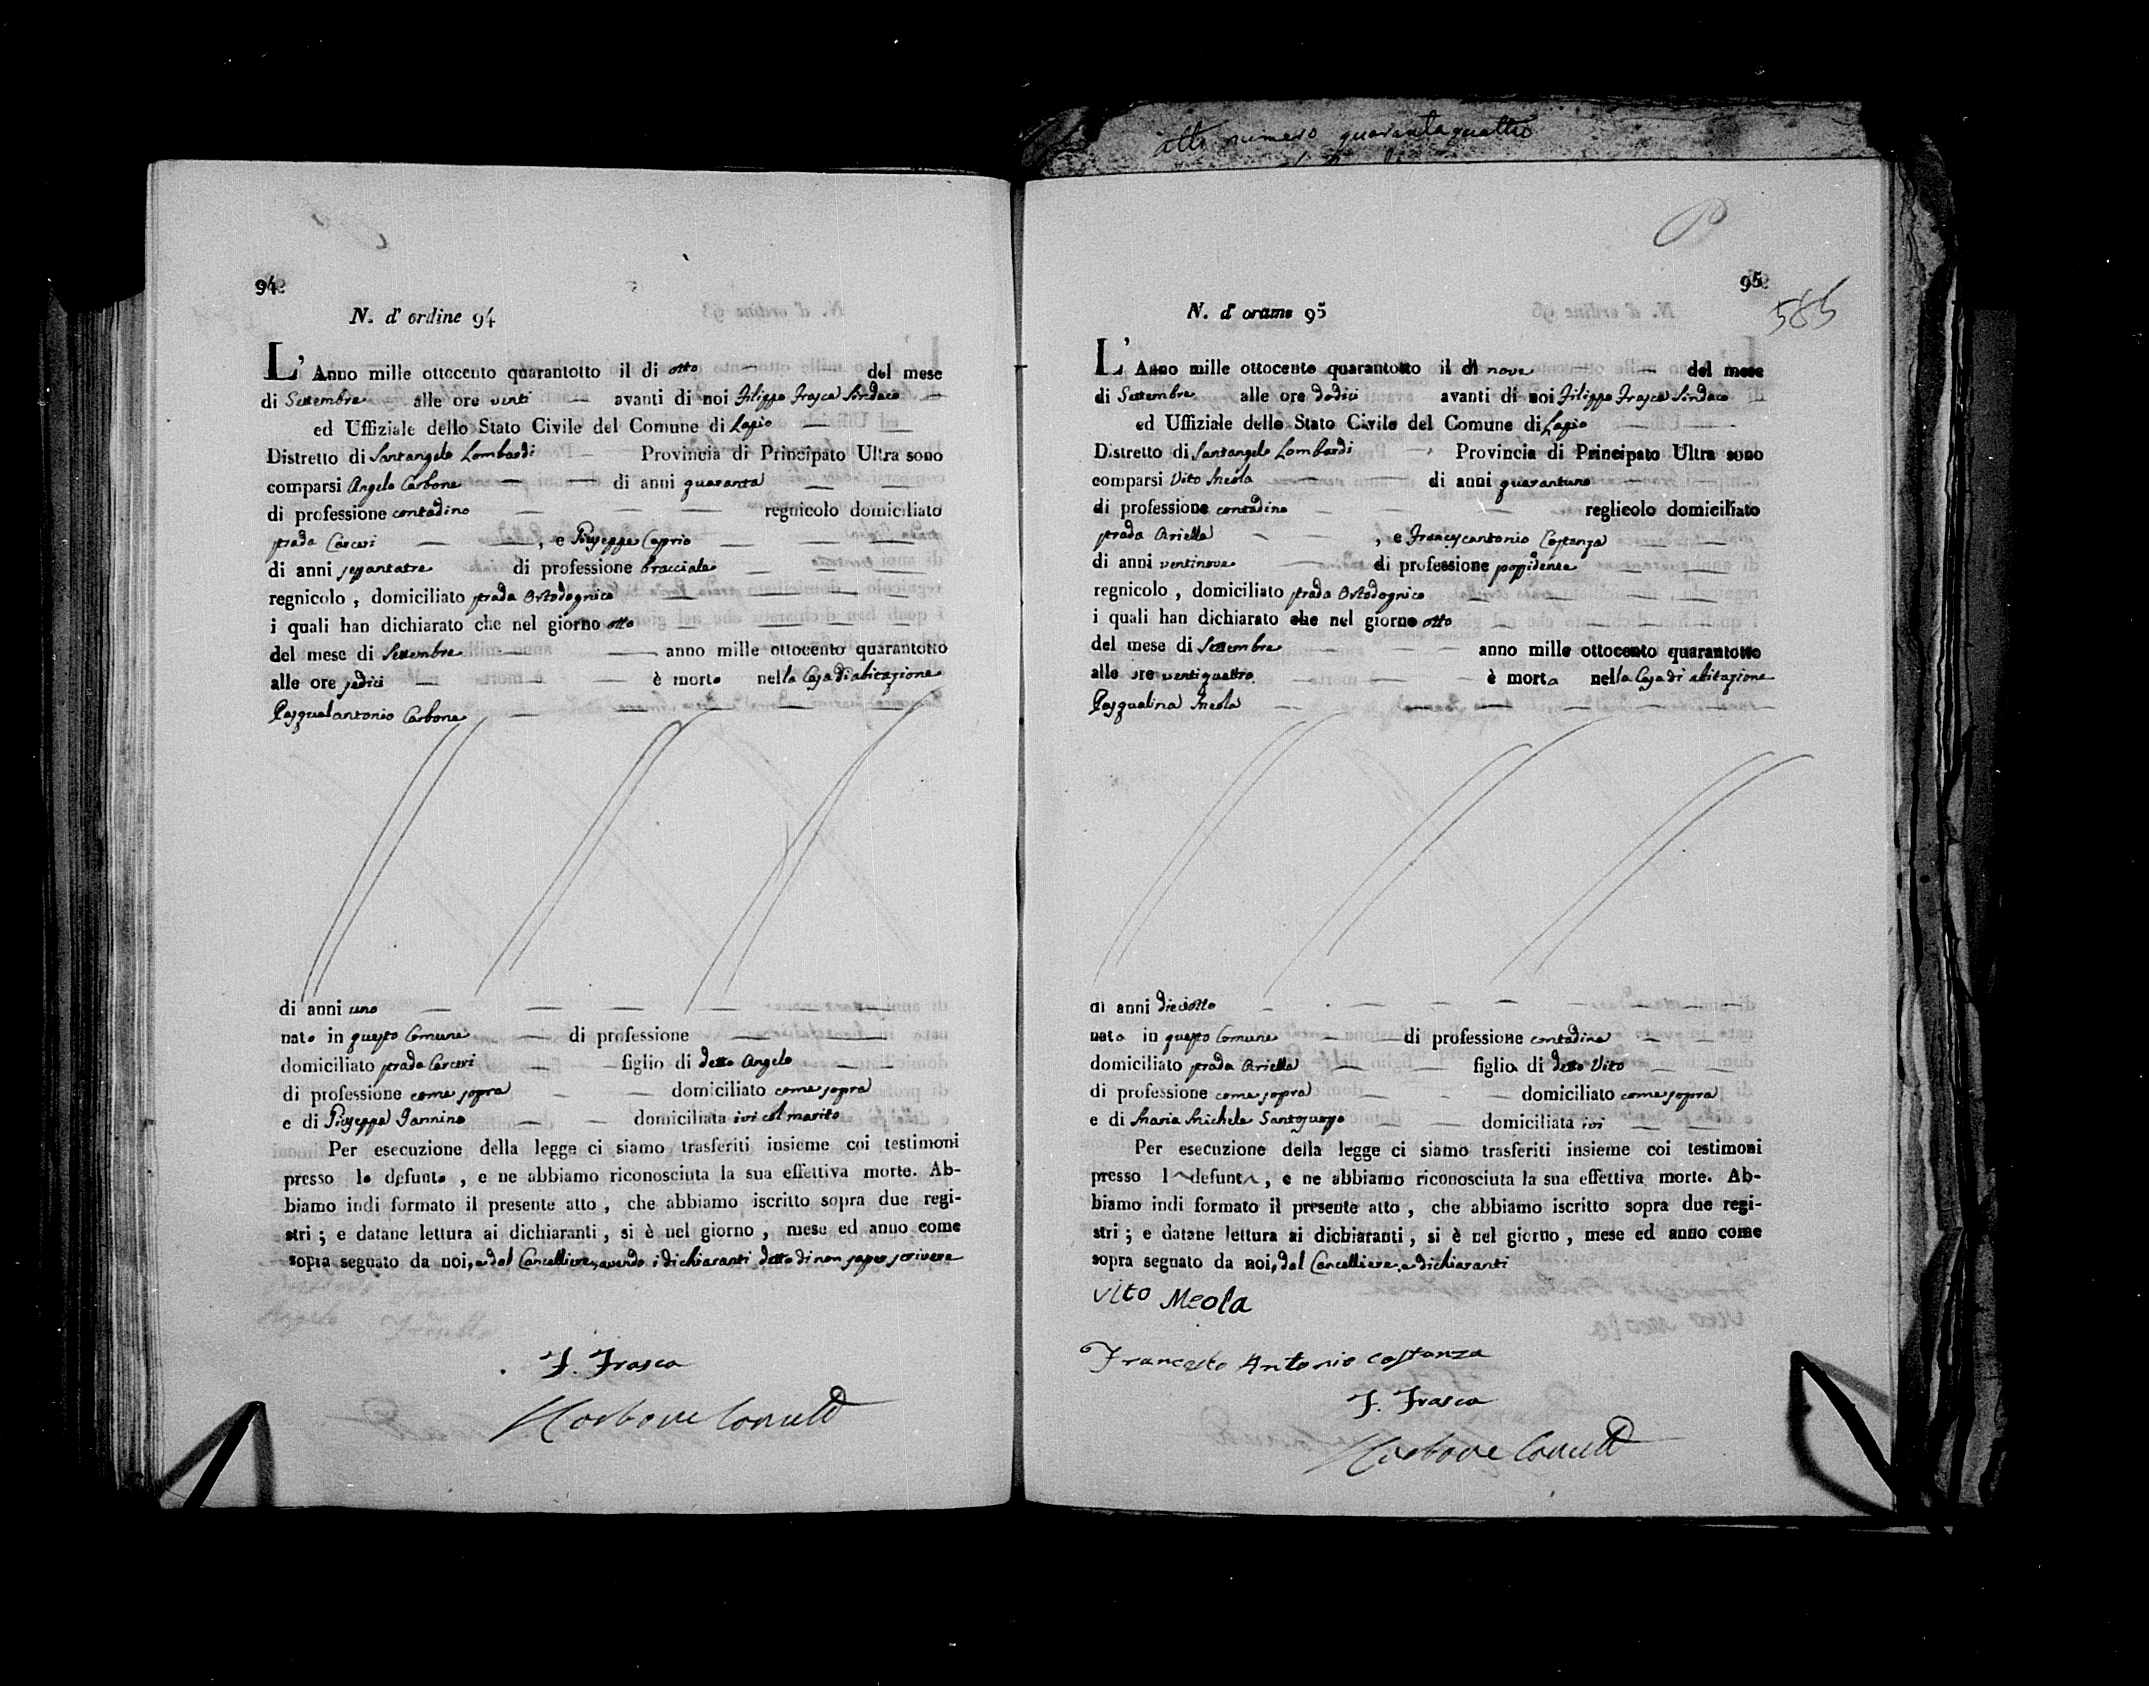 atto numero quarantaquattro
94
N. d' ordine 94
L' Anno mille ottocento quarantotto il di otto del mese
di Settembre alle ore venti avanti di noi Filippo Frasca Sindaco
ed Uffiziale dello Stato Civile del Comune di Lapio
Distretto di Santangelo Lombardi Provincia di Principato Ultra sono
comparsi Angelo Carbone di anni quaranta
di professione contadino regnicolo domiciliato
strada Carceri , e Giuseppe Caprio
di anni sessantatre di professione bracciale
regnicolo , domiciliato strada Ortodognico
i quali han dichiarato che nel giorno otto
del mese di Settembre anno mille ottocento quarantotto
alle ore sedici è morto nella Casa di abitazione
Pasqualantonio Carbone
di anni uno
nato in questo Comune di professione
domiciliato strada Carceri figlio di detto Angelo
di professione come sopra domiciliato come sopra
e di Giuseppa Iannino domiciliata ivi col marito
Per esecuzione della legge ci siamo trasferiti insieme coi testimoni
presso lo defunto , e ne abbiamo riconosciuta la sua effettiva morte. Ab-
biamo indi formato il presente atto , che abbiamo iscritto sopra due regi-
stri ; e datane lettura ai dichiaranti , si è nel giorno , mese ed anno come
sopra segnato da noi, e dal Cancelliere, avendo i dichiaranti detto di non saper scrivere
F. Frasca
95
585
N. d' ordine 95
L' Anno mille ottocento quarantotto il di nove del mese
di Settembre alle ore dodici avanti di noi Filippo Frasca Sindaco
ed Uffiziale dello Stato Civile del Comune di Lapio
Distretto di Santangelo Lombardi Provincia di Principato Ultra sono
comparsi Vito Meola di anni quarantuno
di professione contadino reglicolo domiciliato
strada Ariella , e Francescantonio Costanza
di anni ventinove di professione possidente
regnicolo , domiciliato strada Ortodognico
i quali han dichiarato che nel giorno otto
del mese di Settembre anno mille ottocento quarantotto
alle ore ventiquattro è morta nella Casa di abitazione
Pasqualina Meola
di anni dieciotto
nata in questo Comune di professione contadina
domiciliato strada Ariella figlia di detto Vito
di professione come sopra domiciliato come sopra
e di Maria Michela Santosuosso domiciliata ivi
Per esecuzione della legge ci siamo trasferiti insieme coi testimoni
presso la defunta , e ne abbiamo riconosciuta la sua effettiva morte. Ab-
biamo indi formato il presente atto , che abbiamo iscritto sopra due regi-
stri ; e datane lettura ai dichiaranti , si è nel giorno , mese ed anno come
sopra segnato da noi, dal Cancelliere, e dichiaranti
Vito Meola
Francesco Antonio Costanza
F. Frasca